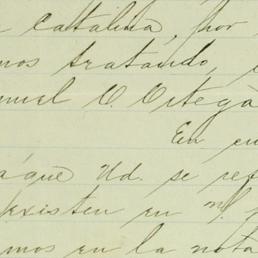 Catalina, por
mos tratando,
nuel O. Ortega
En
á que Ud. se re
existen en
mos en la nota